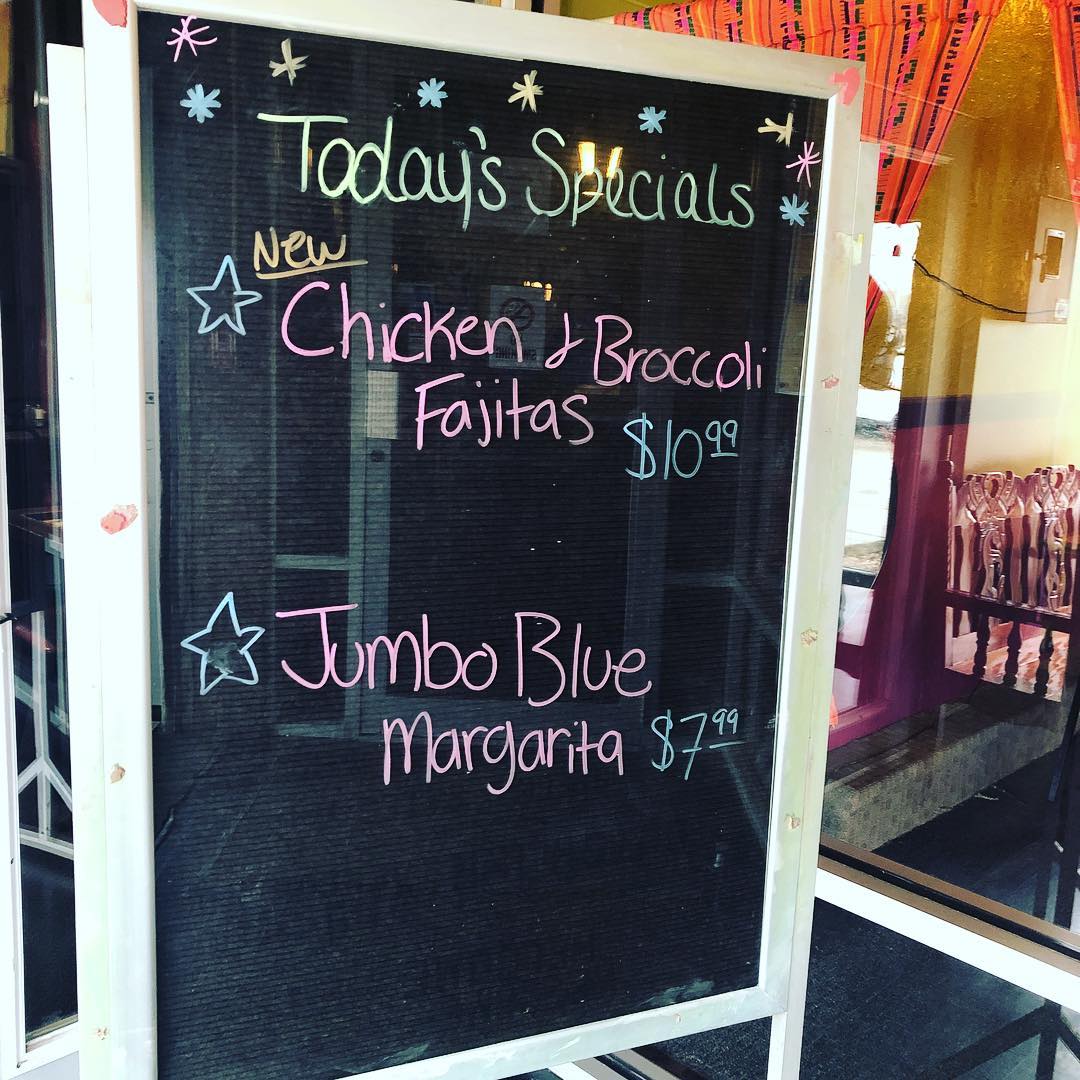 Today's Specials
New
Chicken & Broccoli
Fajitas $10.99
Jumbo Blue
Margarita $7.99